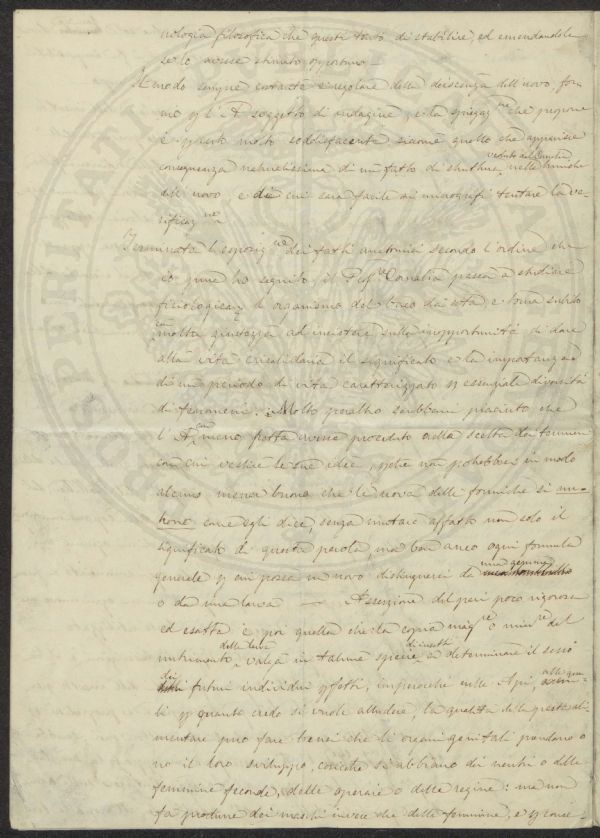 nologia filosofica che questi tentò di stabilire, ed emendandola
se lo avesse stimato opportuno.
Il modo sempre costante e regolare della deiscenza dell'uovo, for
ma p l'A. soggetto di indagine, e la spiegaz.ne che propone
è molto soddisfacente siccome quella che apparisce
conseguenza naturalissima di un fatto di struttura veduto dal nelle
dell'uovo, e di cui sarà facile ai micrografi tentare la ve-
rificaz.ne
Terminata l'esposiz.ne dei fatti anatomici secondo l'ordine che
io pure ho seguito, il Prof.re Cornalia passa a studiare
fisiologicam. l'organismo del baco da seta e torna subito
con molta giustezza ad insistere sulla inopportunità di dare
alla vita crisalidaria il significato e la importanza
di un periodo di vita caratterizzato p essenziale diversità
di fenomeni. Molto peraltro sarebbemi piaciuto che
l'A. con meno fretta avesse proceduto nella scelta dei termini
con cui vestire le sue idee, poiché non potrebbesi in modo
alcuno menar buono che le uova delle formiche si nu-
trono come egli dice, senza mutare affatto non solo il
significato di questa parola, ma ben anco ogni formula
generale p cui possa un uovo distinguersi da una gemma
o da una larva — Asserzione del pari poco rigorosa
ed esatta è poi quella che la copia magg.re o min.re del
nutrimento delle larve valga in talune specie di insetti a determinare il sesso
dei futuri individui perfetti, imperocchè nelle Api, alle qua-
li p quanto credo si vuole alludere, la qualità della pasta ali-
mentare può fare bensì che li organi genitali prendano o
no il loro sviluppo, cosicchè si abbiano dei neutri o delle
femmine feconde, delle operaie o delle regine: ma non
fa produrre dei maschi invece che delle femmine, e